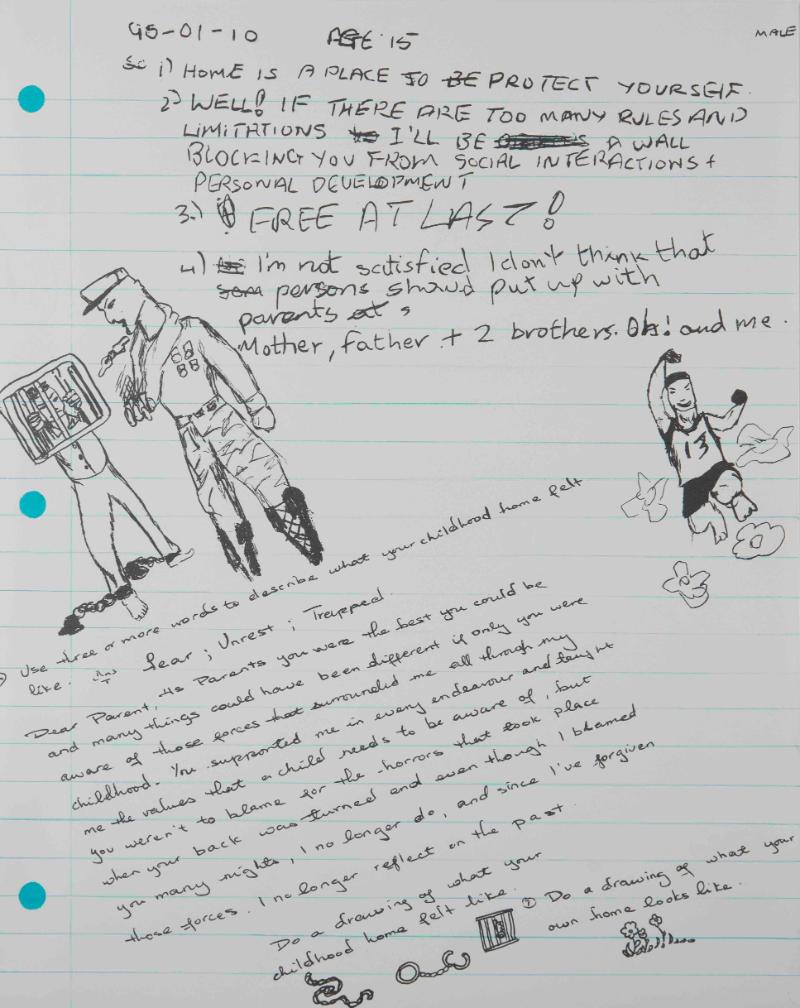 95-01-10 AGE 15
MALE
i) HOME IS A PLACE TO BE PROTECT YOURSELF.
2) WELL! IF THERE ARE TOO MANY RULES AND
LIMITATIONS I'LL BE A WALL
BLOCKING YOU FROM SOCIAL INTERACTIONS +
PERSONAL DEVELOPMENT
3.) FREE AT LAST!
4) I'm not satisfied I don't think that
persons should put up with
parents
Mother, father + 2 brothers. Oh! and me.
13
Use three or more words to describe what your childhood home felt
like. Ans fear ; Unrest ; Trapped.
Dear Parent, As Parents you were the best you could be
and many things could have been different if only you were
aware of those forces that surrounded me all through my
childhood. You supported me in every endeavour and taught
me the values that a child needs to be aware of, but
you weren't to blame for the horrors that took place
when your back was turned and even though I blamed
you many nights, I no longer do, and since I've forgiven
those forces. I no longer reflect on the past.
Do a drawing of what your
childhood home felt like.
② Do a drawing of what your
own home looks like.